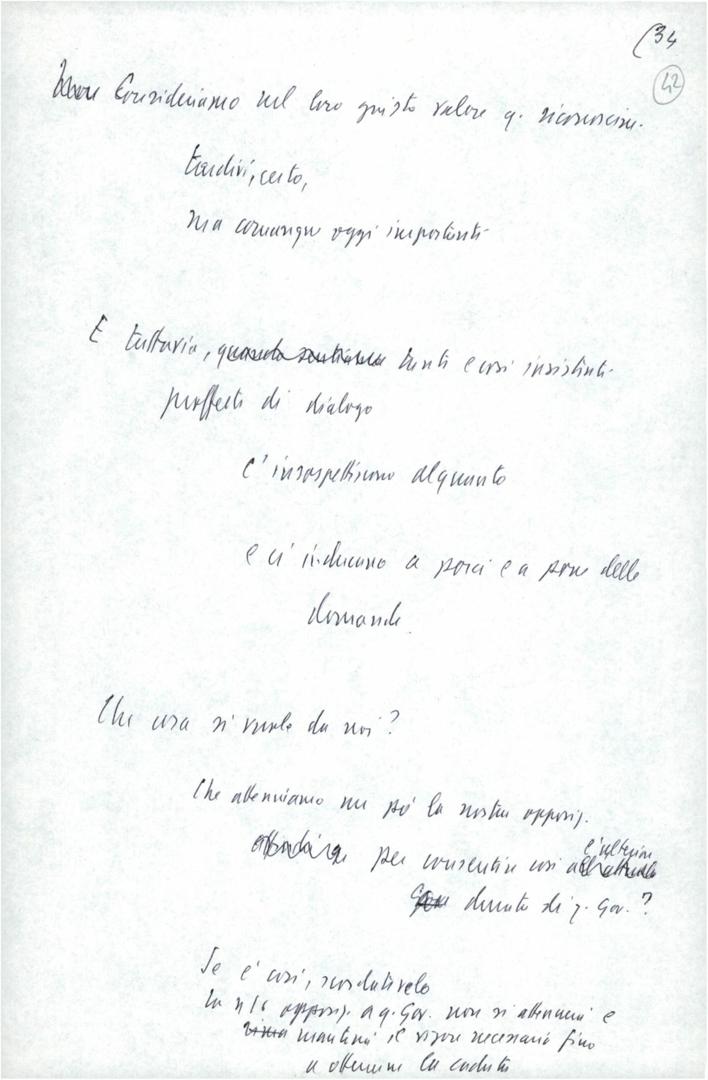 (34
42
Consideriamo nel loro giusto valore q. riconoscim.
tardivi, certo,
ma comunque oggi importanti
E tuttavia, quando sentiamo tanti e così insistenti
profferte di dialogo
c'insospettiscono alquanto
e ci inducono a porci e a porre delle
domande
Che cosa si vuole da noi?
Che attenuiamo un po' la nostra opposiz.
per consentire così l'ulteriore
durata di q. Gov.?
Se è così, scordatevelo
La n/s opposiz. a q. Gov. non si attenuerà e
manterrà il vigore necessario fino
a ottenerne la caduta